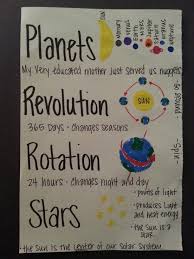 Planets
My Very educated mother just served us nuggets
Revolution
365 Days - changes seasons
SUN
go around
Rotation
Spin
24 hours - changes night and day
Stars
- points of light
- produces light and heat energy
- the sun is a star
- the sun is the center of our solar system